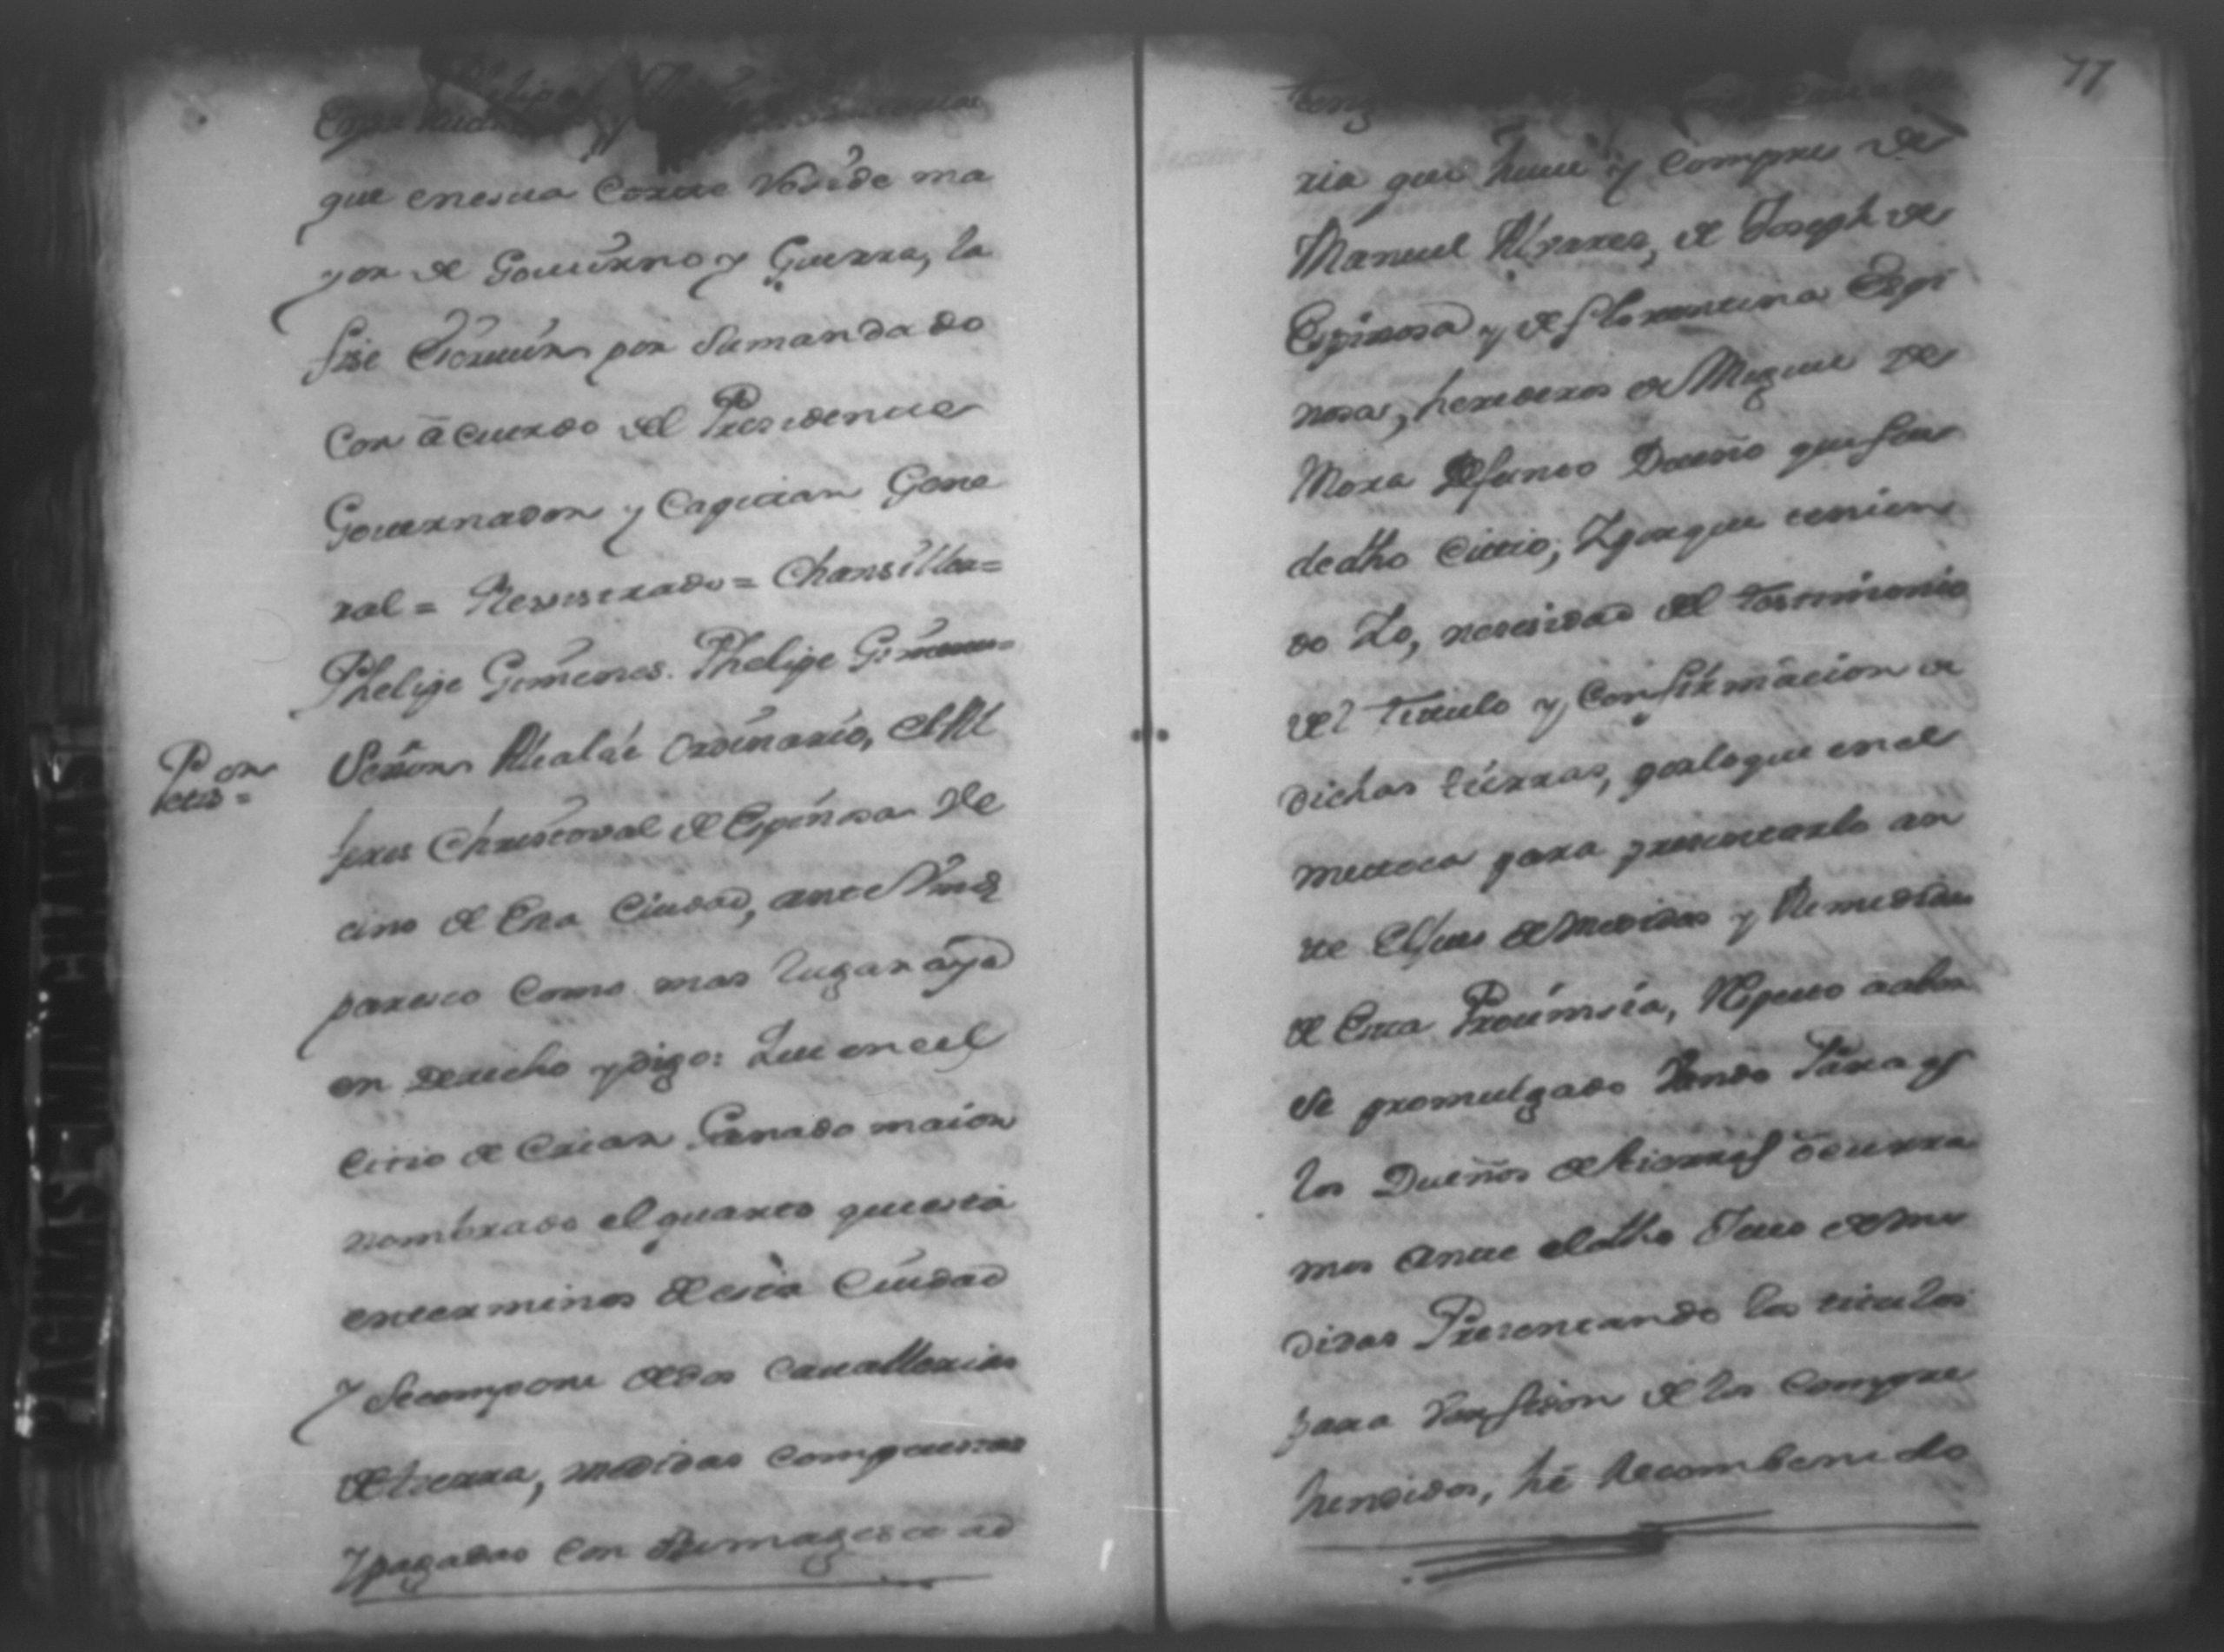 que enesta Corte Reside ma
yor de Gouierno y Guerra, la
fize Escreuir por Sumandado
Con acuerdo del Presidente
Gouernador y Capitan Gene
ral = Rexistrado = Chansiller =
Phelipe Gimenes. Phelipe Gimenes =
Peti
cion =
Señor Alcalde Ordinario, el Al
feres Christoval de Espinosa Ve
cino de Esta Ciudad, ante Vmd
paresco como mas lugar aya
en Derecho y digo: Que en el
Citio de Criar Ganado maior
nombrado el quarto que esta
enterminos de esta Ciudad
Y Secompone de dos Cauallerias
de tierra, medidas compuestas
Y pagadas con Su magestad
77
ria que huue y compre de
Manuel Alvarez, de Joseph de
Espinosa y de Florentina Espi
nosa, herederos de Miguel de
Mora Defunto Dueño que fue
de dho Cittio, Y porque tenien
do Yo, necesidad del testimonio
del titulo y Confirmacion de
dichas tierras, por lo que en el
me toca para presentarlo an
te el Jues de Medidas y Remedidas
de Esta Prouinsia, Respecto a aber
Se promulgado Vando Para q
los Dueños de tierras ocurra
mos Ante el dho Jues de me
didas Presentando los titulos
para de los Compre
hendidos, hé Recombenido